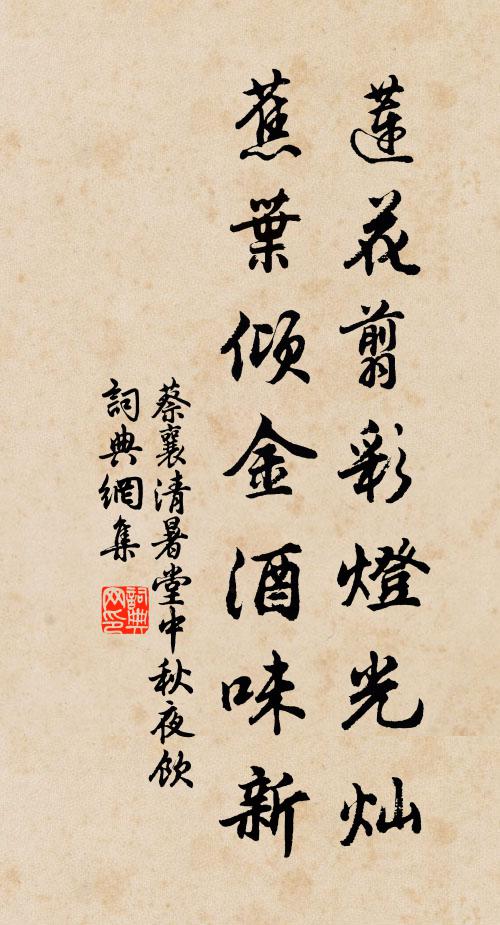 蓮花翦彩燈光灿
蕉葉傾金酒味新
蔡襄清暑堂中秋夜飲
詞典網集
詞典网印